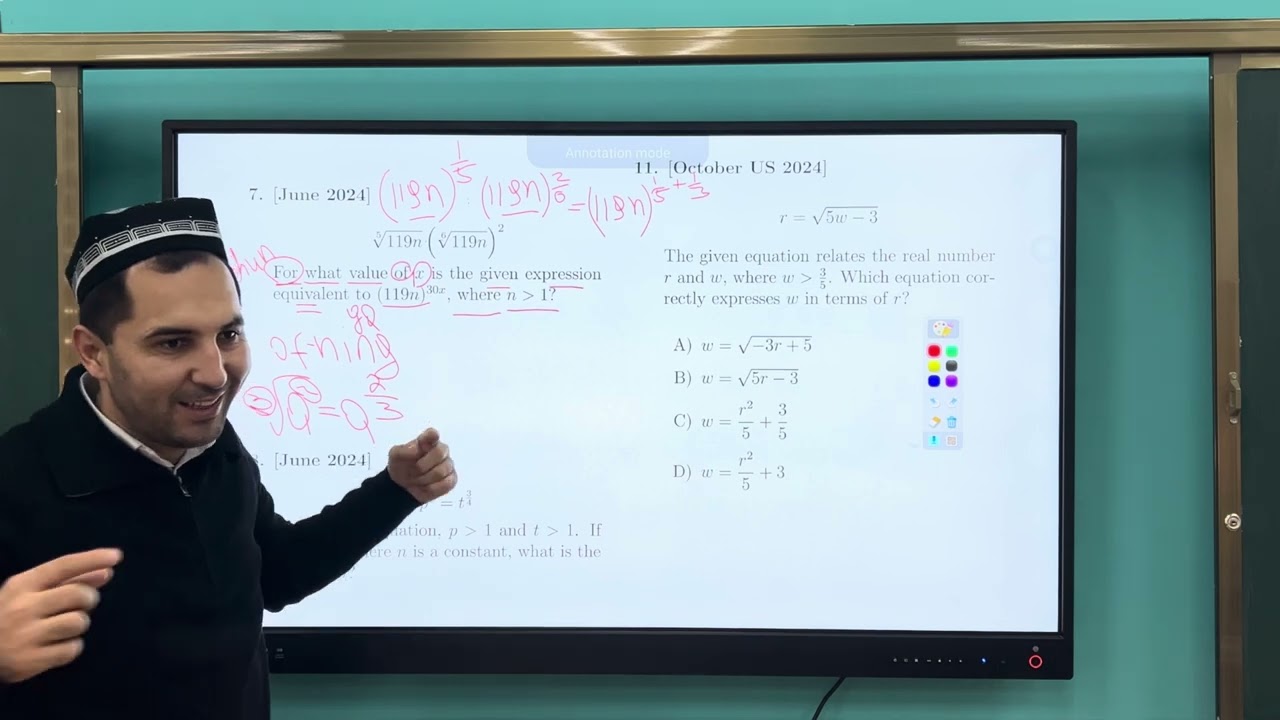 Annotation mode
7. [June 2024] (119n)^{1/5} · (119n)^{2/6} = (119n)^{1/5 + 1/3}
\sqrt[5]{119n} (\sqrt[6]{119n})^2
For what value of x is the given expression
equivalent to (119n)^{30x}, where n > 1?
ga
of-ning
[June 2024]
= t^{3/4}
p > 1 and t > 1. If
n is a constant, what is the
11. [October US 2024]
r = \sqrt{5w − 3}
The given equation relates the real number
r and w, where w > 3/5. Which equation cor-
rectly expresses w in terms of r?
A) w = \sqrt{−3r + 5}
B) w = \sqrt{5r − 3}
C) w = r^2/5 + 3/5
D) w = r^2/5 + 3